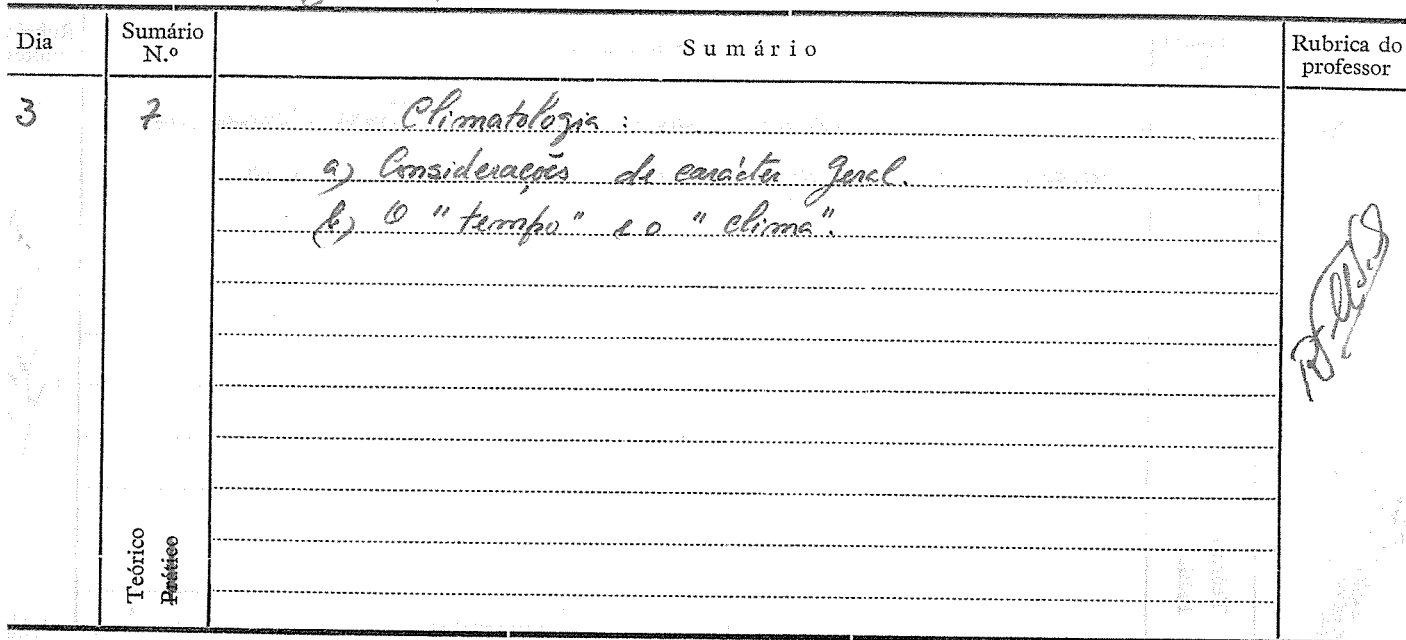 Dia
Sumário N.º
Sumário
Rubrica do professor
3
7
Climatologia :
a) Considerações de carácter geral.
b) O "tempo" e o "clima".
Teórico
Prático